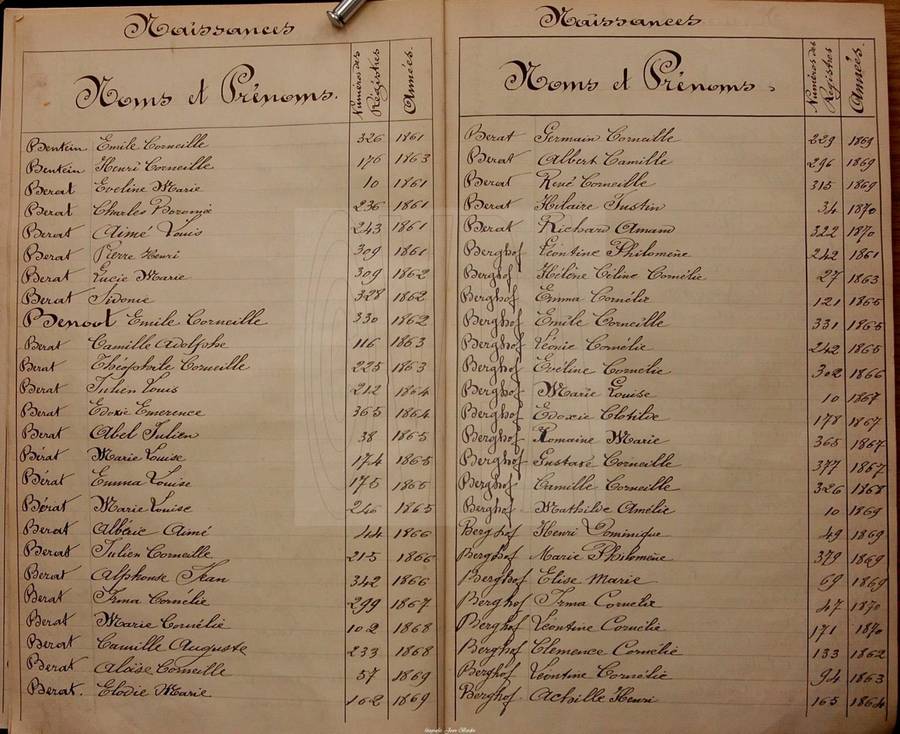 Naissances
Noms et Prénoms. Numéros des Registres Années.
Bentein Emile Corneille 326 1861
Bentein Henri Corneille 176 1863
Berat Eveline Marie 10 1861
Berat Charles 236 1861
Berat Aimé Louis 243 1861
Berat Pierre Henri 309 1861
Berat Lucie Marie 309 1862
Berat Sidonie 328 1862
Benoot Emile Corneille 330 1862
Berat Camille Adolphe 116 1863
Berat Théophile Corneille 225 1863
Berat Julien Louis 212 1864
Berat Edoxie Emerence 365 1864
Berat Abel Julien 38 1865
Bérat Marie Louise 174 1865
Bérat Emma Louise 175 1865
Bérat Marie Louise 246 1865
Berat Albéric Aimé 44 1866
Berat Julien Corneille 215 1866
Berat Alphonse Jean 342 1866
Berat Irma Cornélie 299 1867
Berat Marie Cornélie 102 1868
Berat Camille Auguste 233 1868
Berat Aloïse Corneille 57 1869
Berat. Elodie Marie 162 1869
Naissances
Noms et Prénoms. Numéros des Registres Années.
Berat Germain Corneille 229 1869
Berat Albert Camille 296 1869
Berat René Corneille 315 1869
Berat Hilaire Justin 34 1870
Berat Richard Amand 322 1870
Berghof Léontine Philomène 242 1861
Berghof Hélène Céline Cornélie 27 1863
Berghof Emma Cornélie 121 1865
Berghof Emile Corneille 331 1865
Berghof Léonie Cornélie 242 1865
Berghof Evéline Cornelie 302 1866
Berghof Marie Louise 10 1867
Berghof Edoxcie Clotilde 178 1867
Berghof Romaine Marie 365 1867
Berghof Gustave Corneille 377 1867
Berghof Camille Corneille 326 1868
Berghof Mathilde Amélie 10 1869
Berghof Henri Dominique 49 1869
Berghof Marie Philomène 379 1869
Berghof Elise Marie 69 1869
Berghof Irma Cornelie 47 1870
Berghof Léontine Cornélie 171 1870
Berghof Clemence Cornélie 133 1862
Berghof Léontine Cornélie 94 1863
Berghof. Achille Henri 165 1864